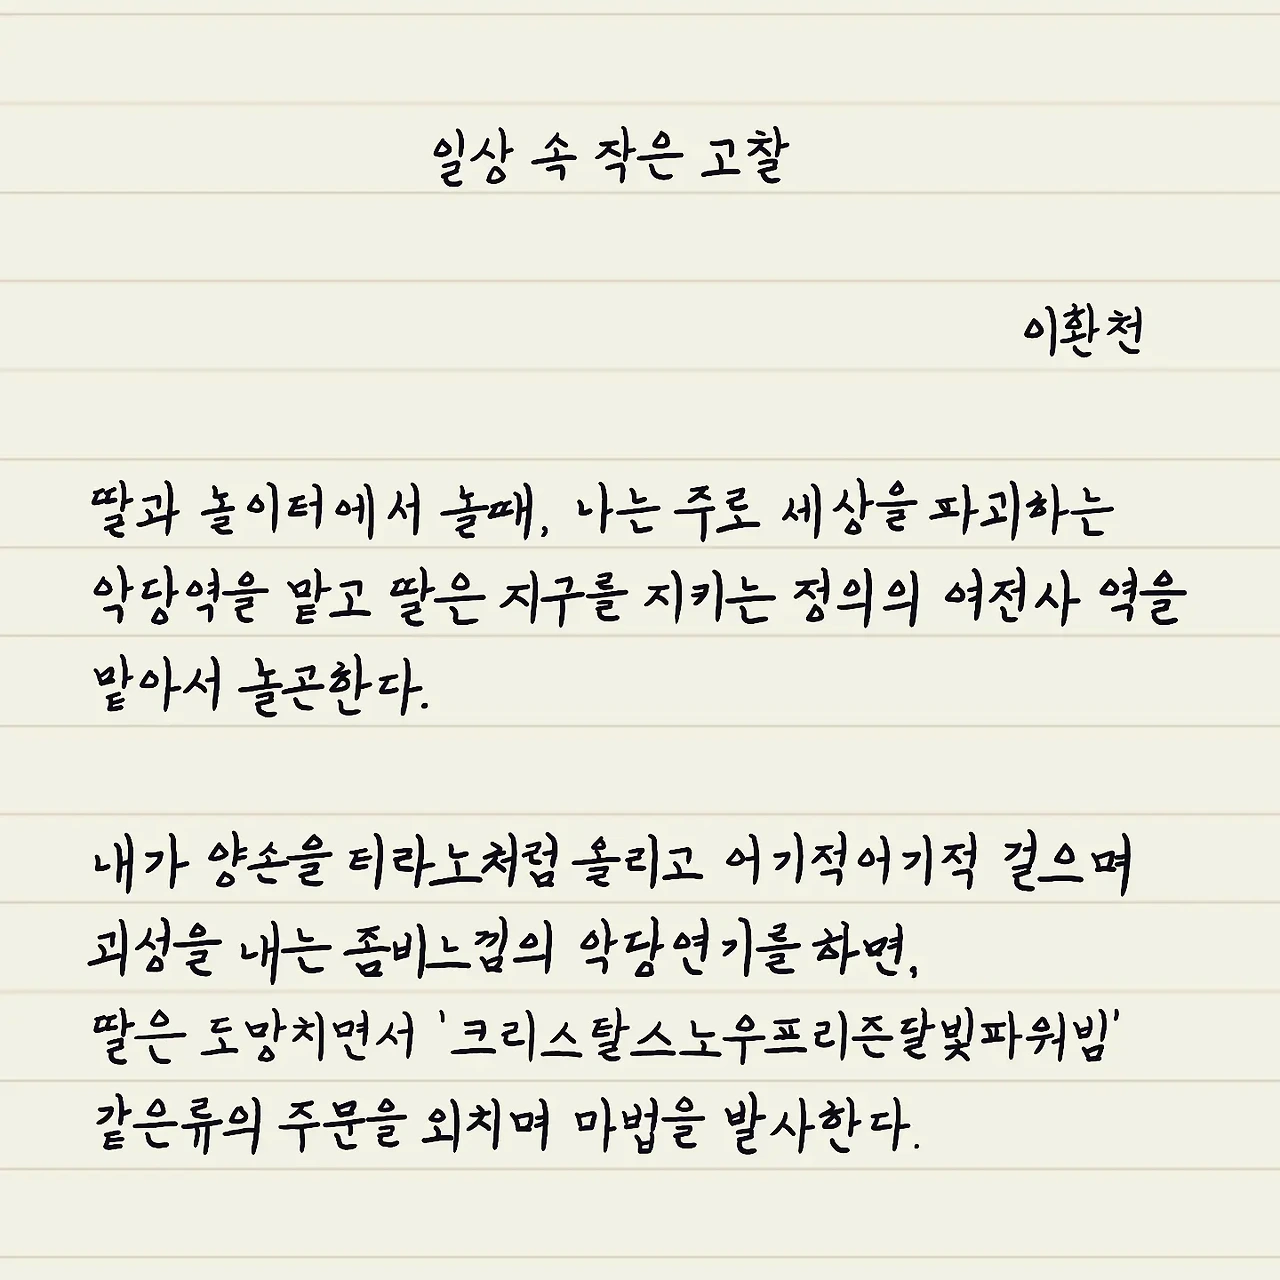 일상 속 작은 고찰
이환천
딸과 놀이터에서 놀때, 나는 주로 세상을 파괴하는
악당역을 맡고 딸은 지구를 지키는 정의의 여전사 역을
맡아서 놀곤한다.
내가 양손을 티라노처럼 올리고 어기적어기적 걸으며
괴성을 내는 좀비느낌의 악당연기를 하면,
딸은 도망치면서 '크리스탈스노우프리즌달빛파워빔'
같은류의 주문을 외치며 마법을 발사한다.